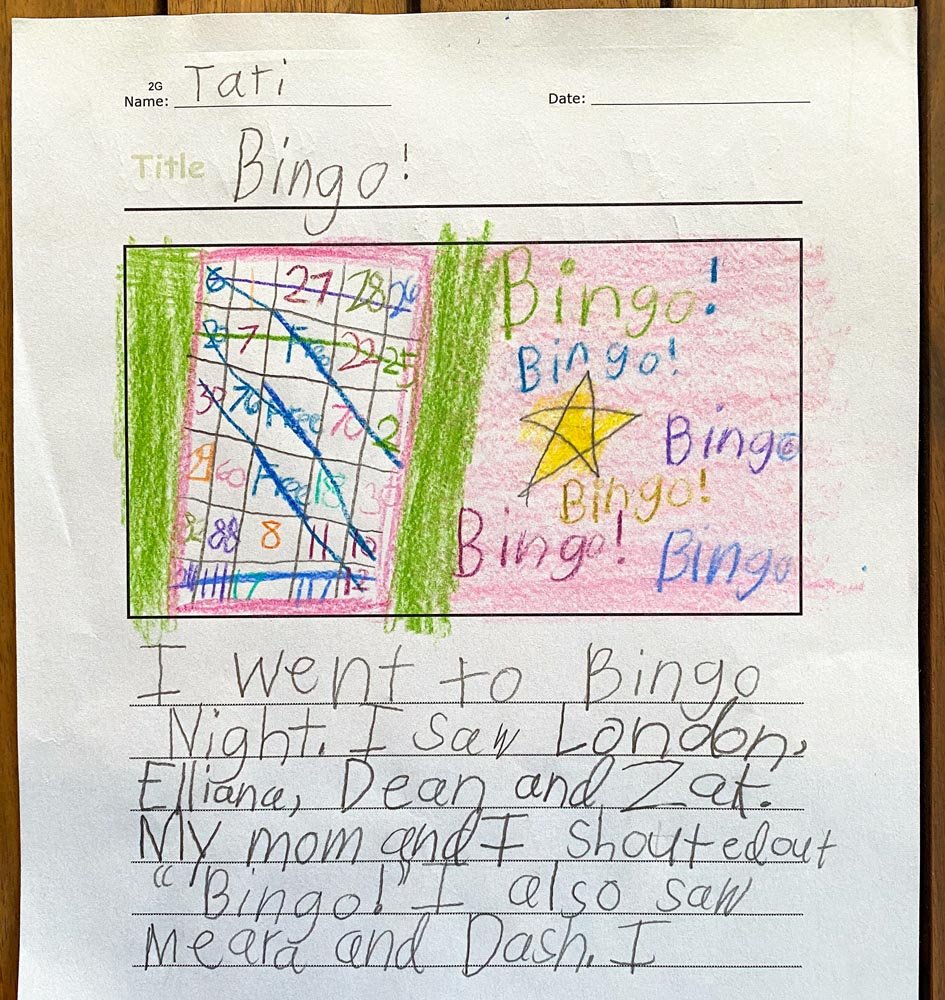 2G
Name: Tati
Date:
Title Bingo!
27 28 26
7 Free 22 25
30 76 Free 70 2
60 Free 18
88 8 11 10
17 12
Bingo!
Bingo!
Bingo
Bingo!
Bingo!
Bingo
I went to Bingo
Night. I saw London,
Elliana, Dean and Zat.
My mom and I shouted out
"Bingo!" I also saw
Meara and Dash. I